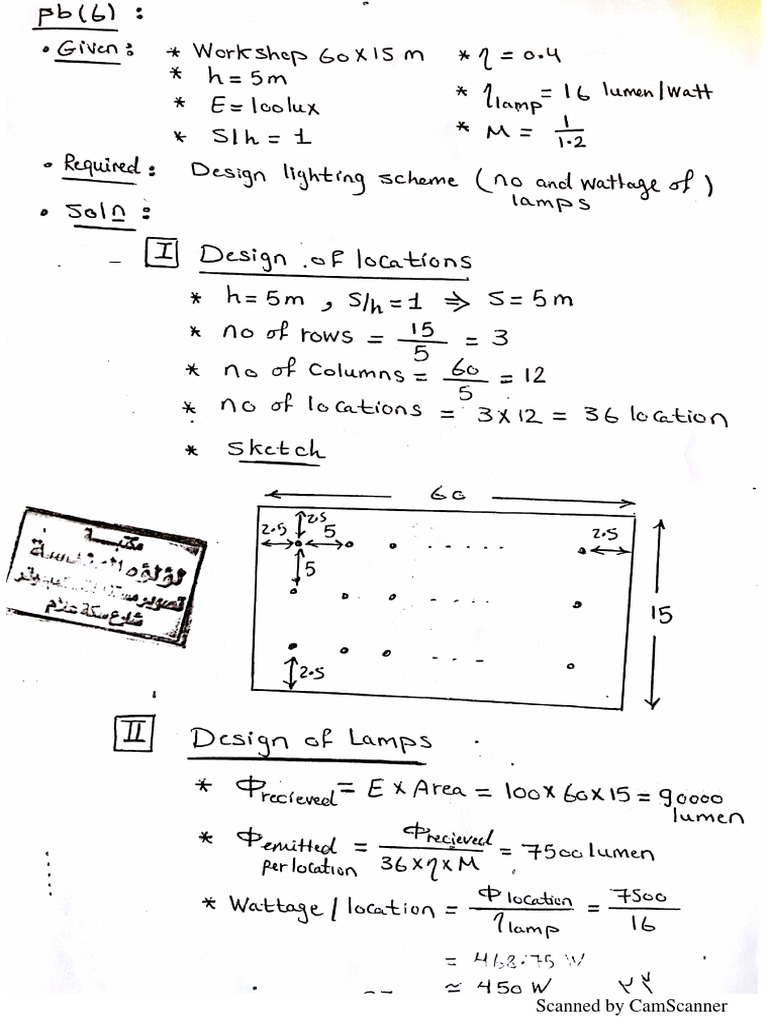 pb(6) :
• Given : * Workshop 60 X 15 m * η = 0.4
* h = 5m * ηlamp = 16 lumen/watt
* E = 100lux * M = 1/1.2
* S/h = 1
• Required : Design lighting scheme (no and wattage of lamps)
• Soln :
I Design of locations
* h = 5m , S/h = 1 ⇒ S = 5 m
* no of rows = 15/5 = 3
* no of Columns = 60/5 = 12
* no of locations = 3 X 12 = 36 location
* Sketch
60
2.5 2.5 5 2.5
5
15
2.5
مكتبة
لؤلؤة الهندسة
شارع سكة علام
II Design of Lamps
* Φrecieved = E x Area = 100 x 60 x 15 = 90000 lumen
* Φemitted per location = Φrecieved / 36 x η x M = 7500 lumen
* Wattage / location = Φlocation / ηlamp = 7500 / 16
= 468.75 W
≈ 450 W ٢٢
Scanned by CamScanner